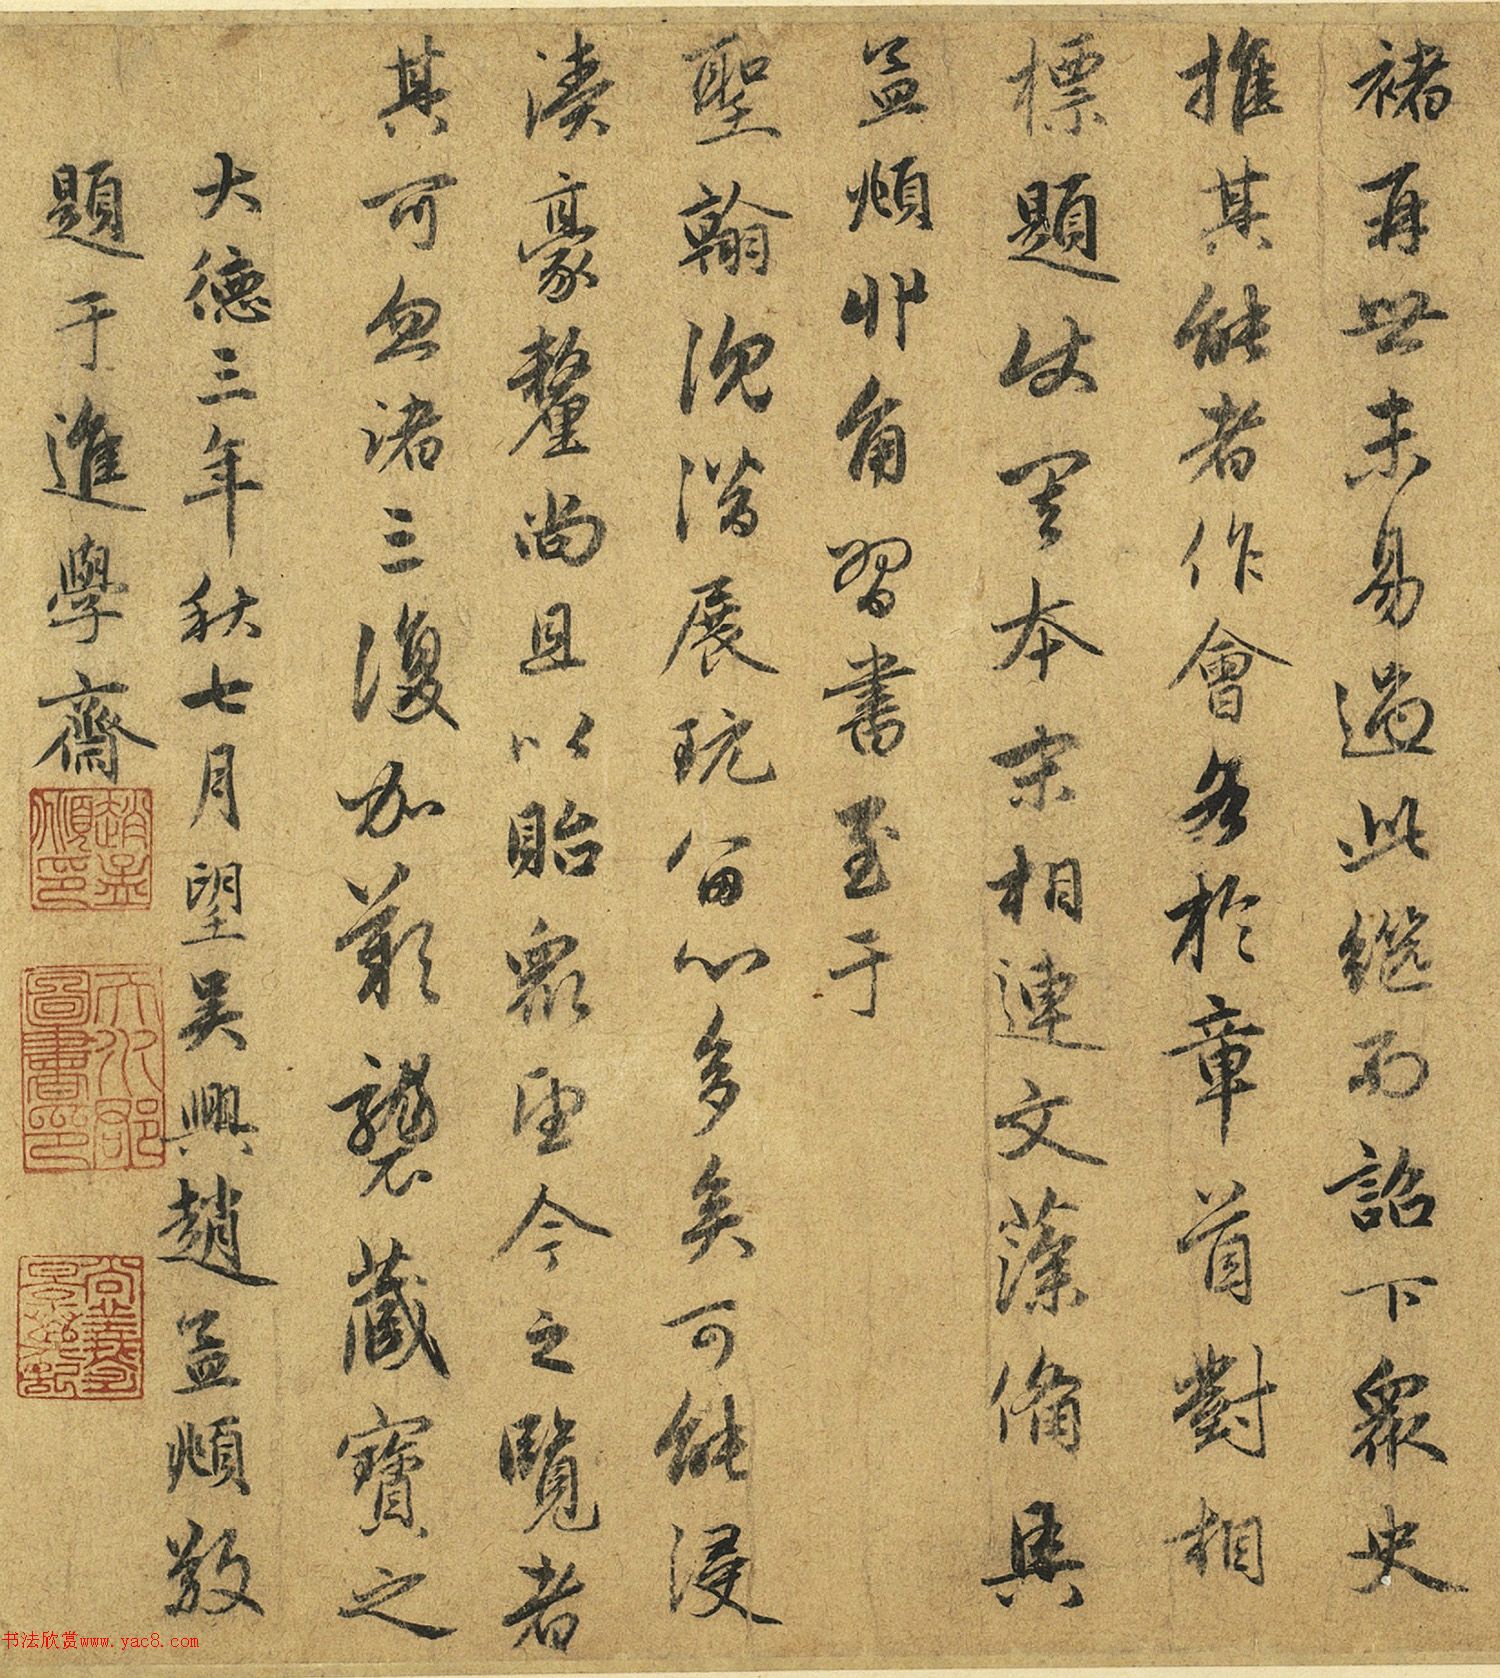 褚再世未易過此繼而詔下眾史
推其能者作會各於章首對相
標題本宗相連文藻備具
孟頫丱角習書至于
聖翰沉潛展玩留心多矣可能浸
湊豪釐尚且以貽眾今之覽者
其可忽諸三復加歎襲藏寶之
大德三年秋七月望吳興趙孟頫敬
題于進學齋
趙孟頫印
天水郡圖書印
书法欣赏www.yac8.com